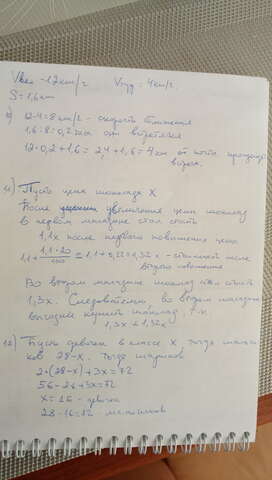 Vвел = 12км/г. Vтуд = 4км/г.
S = 1,6км
12-4=8км/г - скорость
1,6:8=0,2 час
12·0,2+1,6=2,4+1,6=4км от
11) Пусть цена шоколада X
После увеличения цены шоколад
в первом магазине стал стоить
1,1x после первого повышения цены
1,1+ 1,1·20/100 = 1,1+0,22=1,32x - после
второго повышения
Во втором магазине шоколад стал стоить
1,3x. Следовательно, во втором магазине
выгодней купить шоколад, т.к.
1,3x < 1,32x
12) Пусть девочек в классе X, тогда
ков 28-x. Тогда шариков
2·(28-x)+3x=72
56-2x+3x=72
x=16 - девочек
28-16=12 - мальчиков